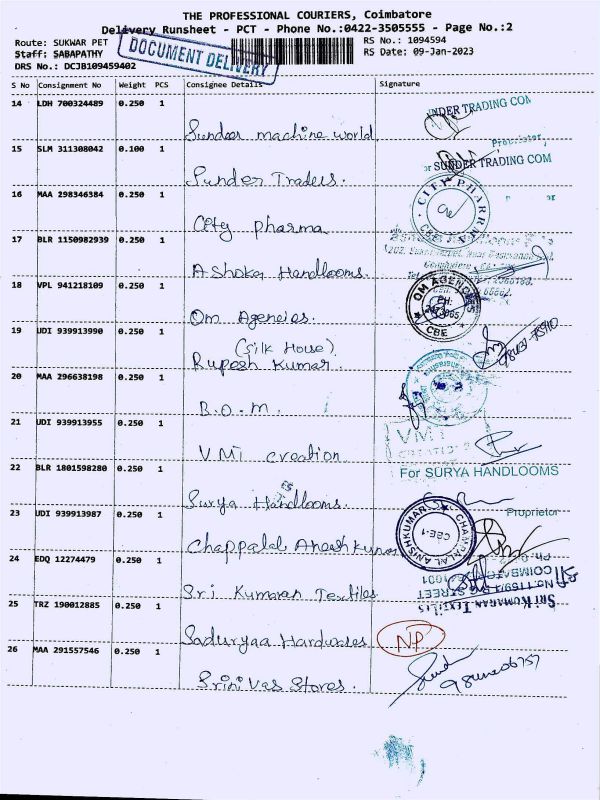 THE PROFESSIONAL COURIERS, Coimbatore
Delivery Runsheet - PCT - Phone No.:0422-3505555 - Page No.:2
Route: SUKWAR PET
RS No.: 1094594
Staff: SABAPATHY
DOCUMENT DELIVERY
RS Date: 09-Jan-2023
DRS No.: DCJB109459402
S No Consignment No Weight PCS Consignee Details Signature
14 LDH 700324489 0.250 1
Sunder machine world
UNDER TRADING COM
Proprietor
15 SLM 311308042 0.100 1
Sunder Traders.
or SUNDER TRADING COM
16 MAA 298346384 0.250 1
City pharma
CITY PHARMA
CBE
17 BLR 1150982939 0.250 1
Ashoka Handlooms.
18 VPL 941218109 0.250 1
Om Agencies.
OM AGENCIES
CBE
19 UDI 939913990 0.250 1
(Silk House)
Rupesh Kumar.
20 MAA 296638198 0.250 1
B.O.M.
21 UDI 939913955 0.250 1
VMI creation
VMI
CREATION
22 BLR 1801598280 0.250 1
Surya Handlooms.
For SURYA HANDLOOMS
Proprietor
23 UDI 939913987 0.250 1
CHAMPALAL ANSHKUMAR
CBE-1
24 EDQ 12274479 0.250 1
Sri Kumaran Textiles
SRI KUMARAN TEXTILES
25 TRZ 190012885 0.250 1
Saduryaa Hardwares
NP
26 MAA 291557546 0.250 1
Srinivas Stores.